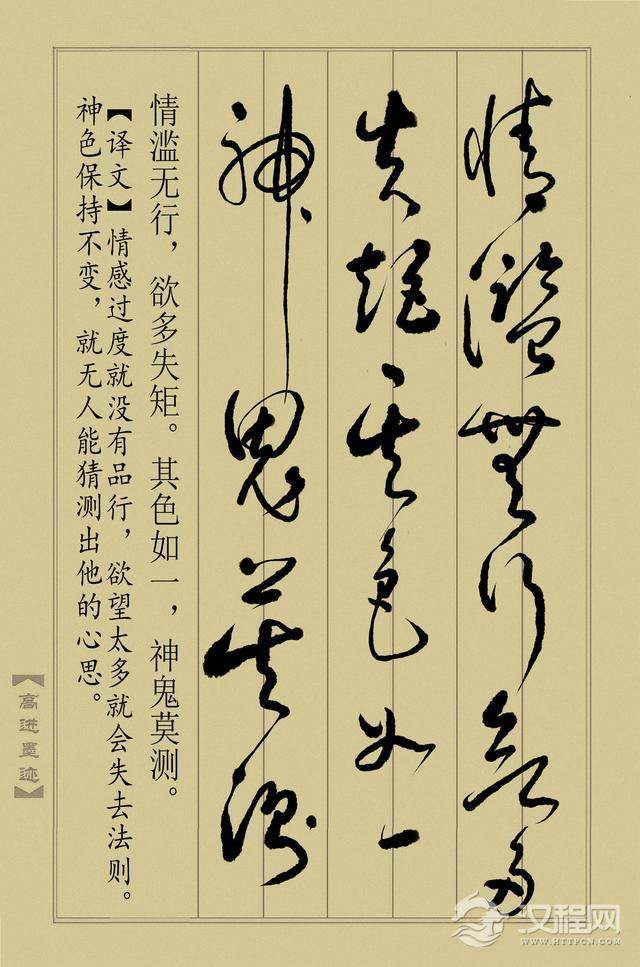 情濫無行欲多
失矩其色如一
神鬼莫測
情滥无行，欲多失矩。其色如一，神鬼莫测。
【译文】情感过度就没有品行，欲望太多就会失去法则。
神色保持不变，就无人能猜测出他的心思。
【高进墨迹】
汉程网
WWW.HTTPCN.COM